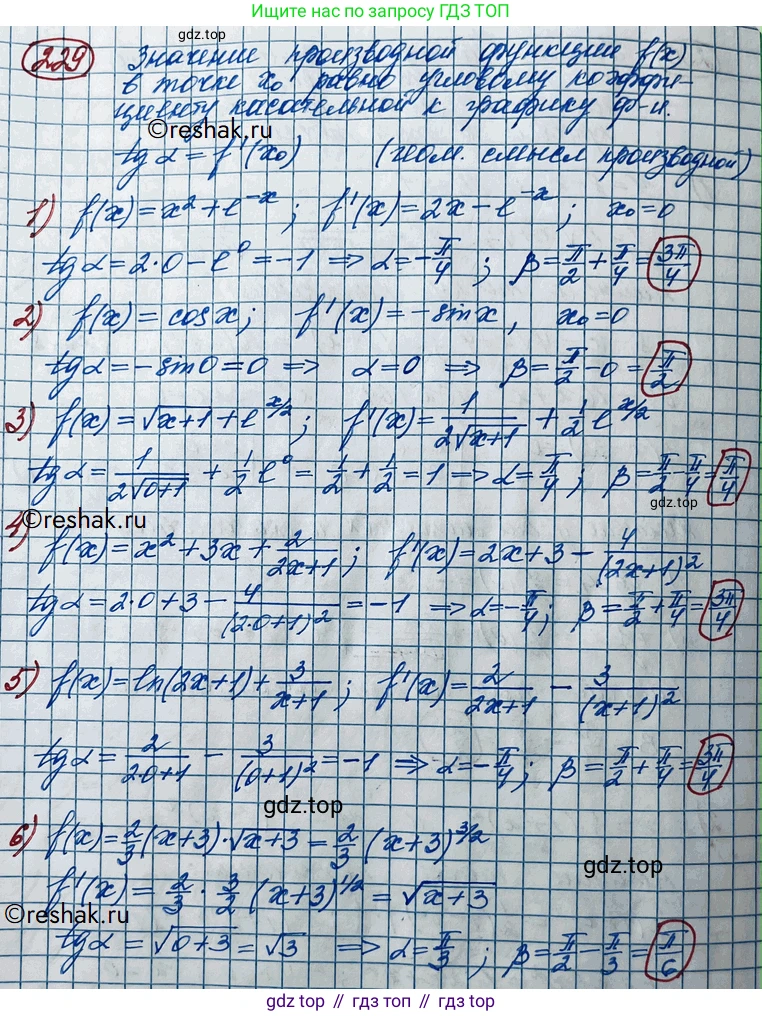 Ищите нас по запросу ГДЗ ТОП
229 Значение производной функции f(x)
в точке x₀ равно угловому коэффи-
циенту касательной к графику ф-и.
©reshak.ru
tgα = f'(x₀) (геом. смысл производной)
1) f(x) = x² + e^(-x); f'(x) = 2x - e^(-x); x₀ = 0
tgα = 2·0 - e⁰ = -1 ⇒ α = -π/4; β = π/2 + π/4 = 3π/4
2) f(x) = cosx; f'(x) = -sinx, x₀ = 0
tgα = -sin0 = 0 ⇒ α = 0 ⇒ β = π/2 - 0 = π/2
3) f(x) = √x+1 + e^(x/2); f'(x) = 1/(2√x+1) + 1/2 e^(x/2)
tgα = 1/(2√0+1) + 1/2 e⁰ = 1/2 + 1/2 = 1 ⇒ α = π/4; β = π/2 - π/4 = π/4
gdz top
©reshak.ru
4) f(x) = x² + 3x + 2/(2x+1); f'(x) = 2x + 3 - 4/(2x+1)²
tgα = 2·0 + 3 - 4/(2·0+1)² = -1 ⇒ α = -π/4; β = π/2 + π/4 = 3π/4
5) f(x) = ln(2x+1) + 3/(x+1); f'(x) = 2/(2x+1) - 3/(x+1)²
tgα = 2/(2·0+1) - 3/(0+1)² = -1 ⇒ α = -π/4; β = π/2 + π/4 = 3π/4
gdz top
6) f(x) = 2/3 (x+3)·√x+3 = 2/3 (x+3)^(3/2)
gdz top
f'(x) = 2/3 · 3/2 (x+3)^(1/2) = √x+3
©reshak.ru
tgα = √0+3 = √3 ⇒ α = π/3; β = π/2 - π/3 = π/6
gdz top // гдз топ // gdz.top